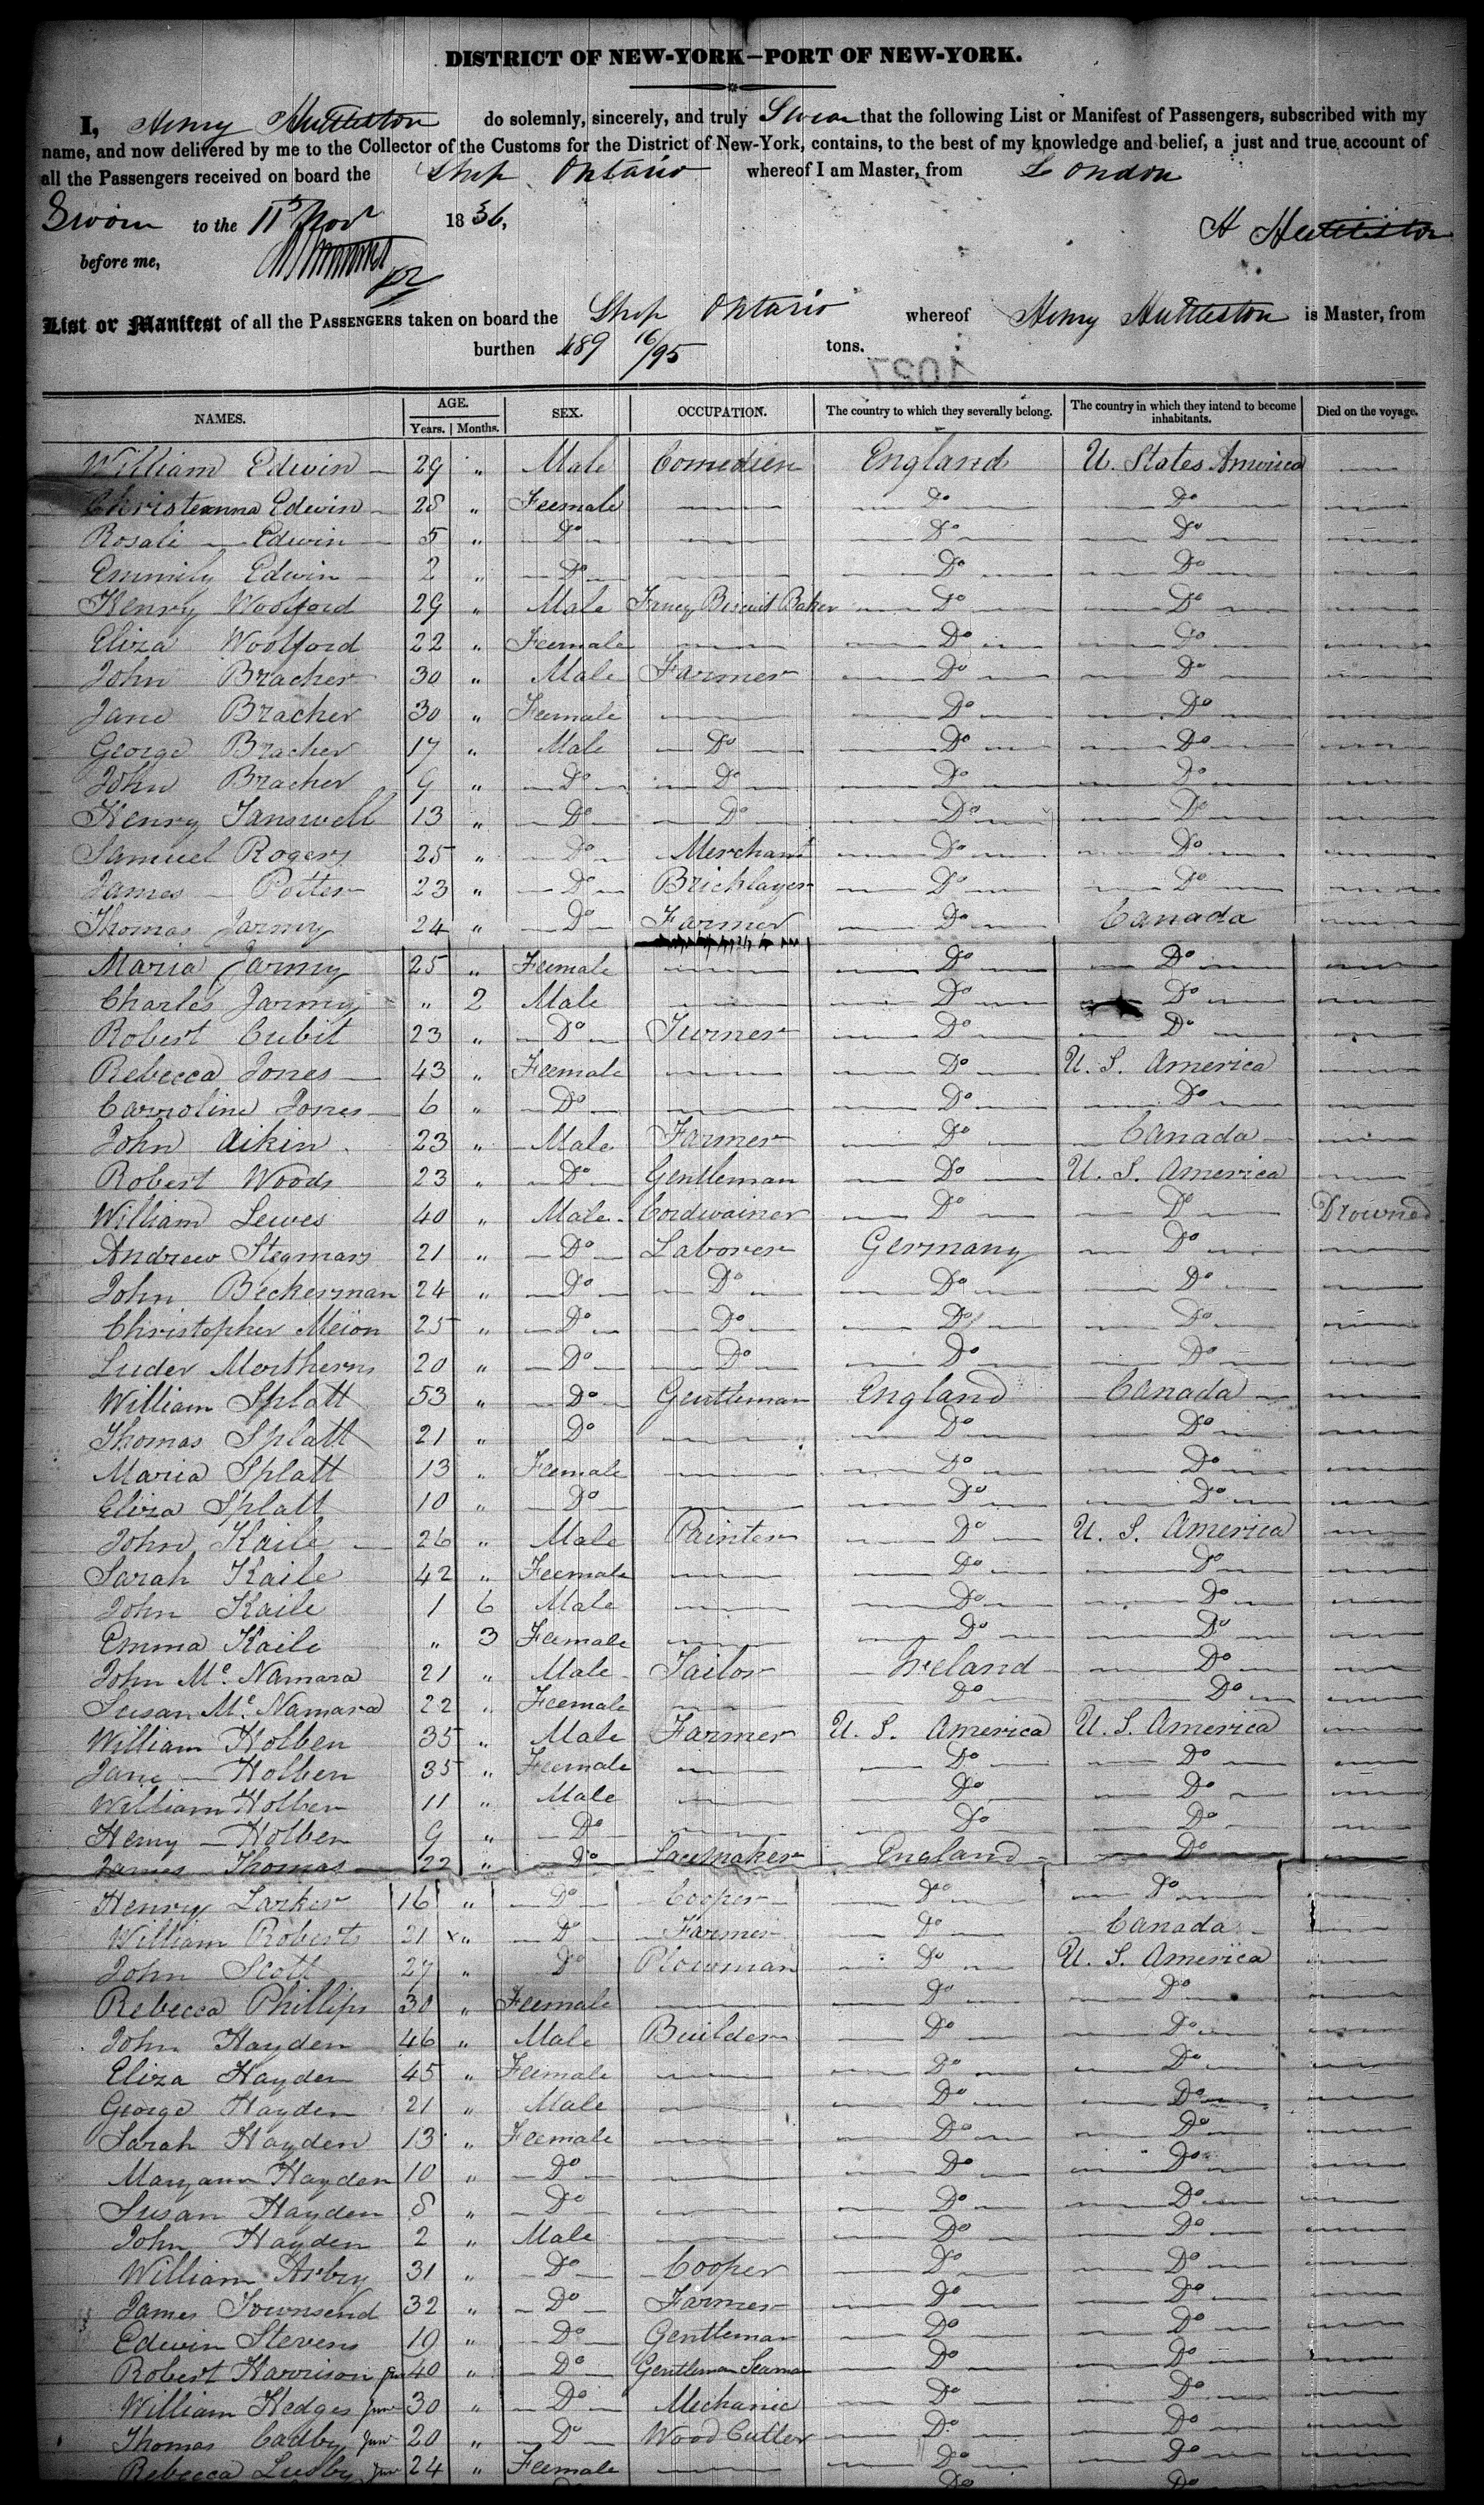 DISTRICT OF NEW-YORK—PORT OF NEW-YORK.
I, Henry Huttleston do solemnly, sincerely, and truly Swear that the following List or Manifest of Passengers, subscribed with my
name, and now delivered by me to the Collector of the Customs for the District of New-York, contains, to the best of my knowledge and belief, a just and true account of
all the Passengers received on board the Ship Ontario whereof I am Master, from London
Sworn to the 11 Novr 1836,
H Huttleston
before me,
List or Manifest of all the PASSENGERS taken on board the Ship Ontario whereof Henry Huttleston is Master, from
burthen 489 16/95 tons.
1027
NAMES. AGE. SEX. OCCUPATION. The country to which they severally belong. The country in which they intend to become inhabitants. Died on the voyage.
Years. Months.
William Edwin 29 " Male Comedien England U. States America
Christeanna Edwin 28 " Feemale Do Do
Rosali Edwin 5 " Do Do Do
Emmily Edwin 2 " Do Do Do
Henry Woolford 29 " Male Fancy Biscuit Baker Do Do
Eliza Woolford 22 " Feemale Do Do
John Bracher 30 " Male Farmer Do Do
Jane Bracher 30 " Feemale Do Do
George Bracher 17 " Male Do Do Do
John Bracher 9 " Do Do Do Do
Henry Tanswell 13 " Do Do Do Do
Samuel Rogers 25 " Do Merchant Do Do
James Potter 23 " Do Bricklayer Do Do
Thomas Jarmy 24 " Do Farmer Do Canada
Maria Jarmy 25 " Feemale Do Do
Charles Jarmy " 2 Male Do Do
Robert Cubit 23 " Do Turner Do Do
Rebecca Jones 43 " Feemale Do U. S. America
Carroline Jones 6 " Do Do Do
John Aikin 23 " Male Farmer Do Canada
Robert Woods 23 " Do Gentleman Do U. S. America
William Lewes 40 " Male Cordwainer Do Do Drowned
Andrew Stegmars 21 " Do Laborer Germany Do
John Beckerman 24 " Do Do Do Do
Christopher Meion 25 " Do Do Do Do
Luder Mertherns 20 " Do Do Do Do
William Splatt 53 " Do Gentleman England Canada
Thomas Splatt 21 " Do Do Do
Maria Splatt 13 " Feemale Do Do
Eliza Splatt 10 " Do Do Do
John Kaile 26 " Male Painter Do U. S. America
Sarah Kaile 42 " Feemale Do Do
John Kaile 1 6 Male Do Do
Emma Kaile " 3 Feemale Do Do
John Mc Namara 21 " Male Tailor Ireland Do
Susan Mc Namara 22 " Feemale Do Do
William Holben 35 " Male Farmer U. S. America U. S. America
Jane Holben 35 " Feemale Do Do
William Holben 11 " Male Do Do
Henry Holben 9 " Do Do Do
James Thomas 22 " Do Shoemaker England Do
Henry Larker 16 " Do Cooper Do Do
William Roberts 21 x " Do Farmer Do Canada
John Scott 27 " Do Plowman Do U. S. America
Rebecca Phillips 30 " Feemale Do Do
John Hayden 46 " Male Builder Do Do
Eliza Hayden 45 " Feemale Do Do
George Hayden 21 " Male Do Do
Sarah Hayden 13 " Feemale Do Do
Maryann Hayden 10 " Do Do Do
Susan Hayden 8 " Do Do Do
John Hayden 2 " Male Do Do
William Arby 31 " Do Cooper Do Do
James Townsend 32 " Do Farmer Do Do
Edwin Stevens 19 " Do Gentleman Do Do
Robert Harrison Junr 40 " Do Gentleman Seaman Do Do
William Hedges Junr 30 " Do Mechanic Do Do
Thomas Cadby Junr 20 " Do Wood Cutter Do Do
Rebecca Lusby Junr 24 " Feemale Do Do
Do Do